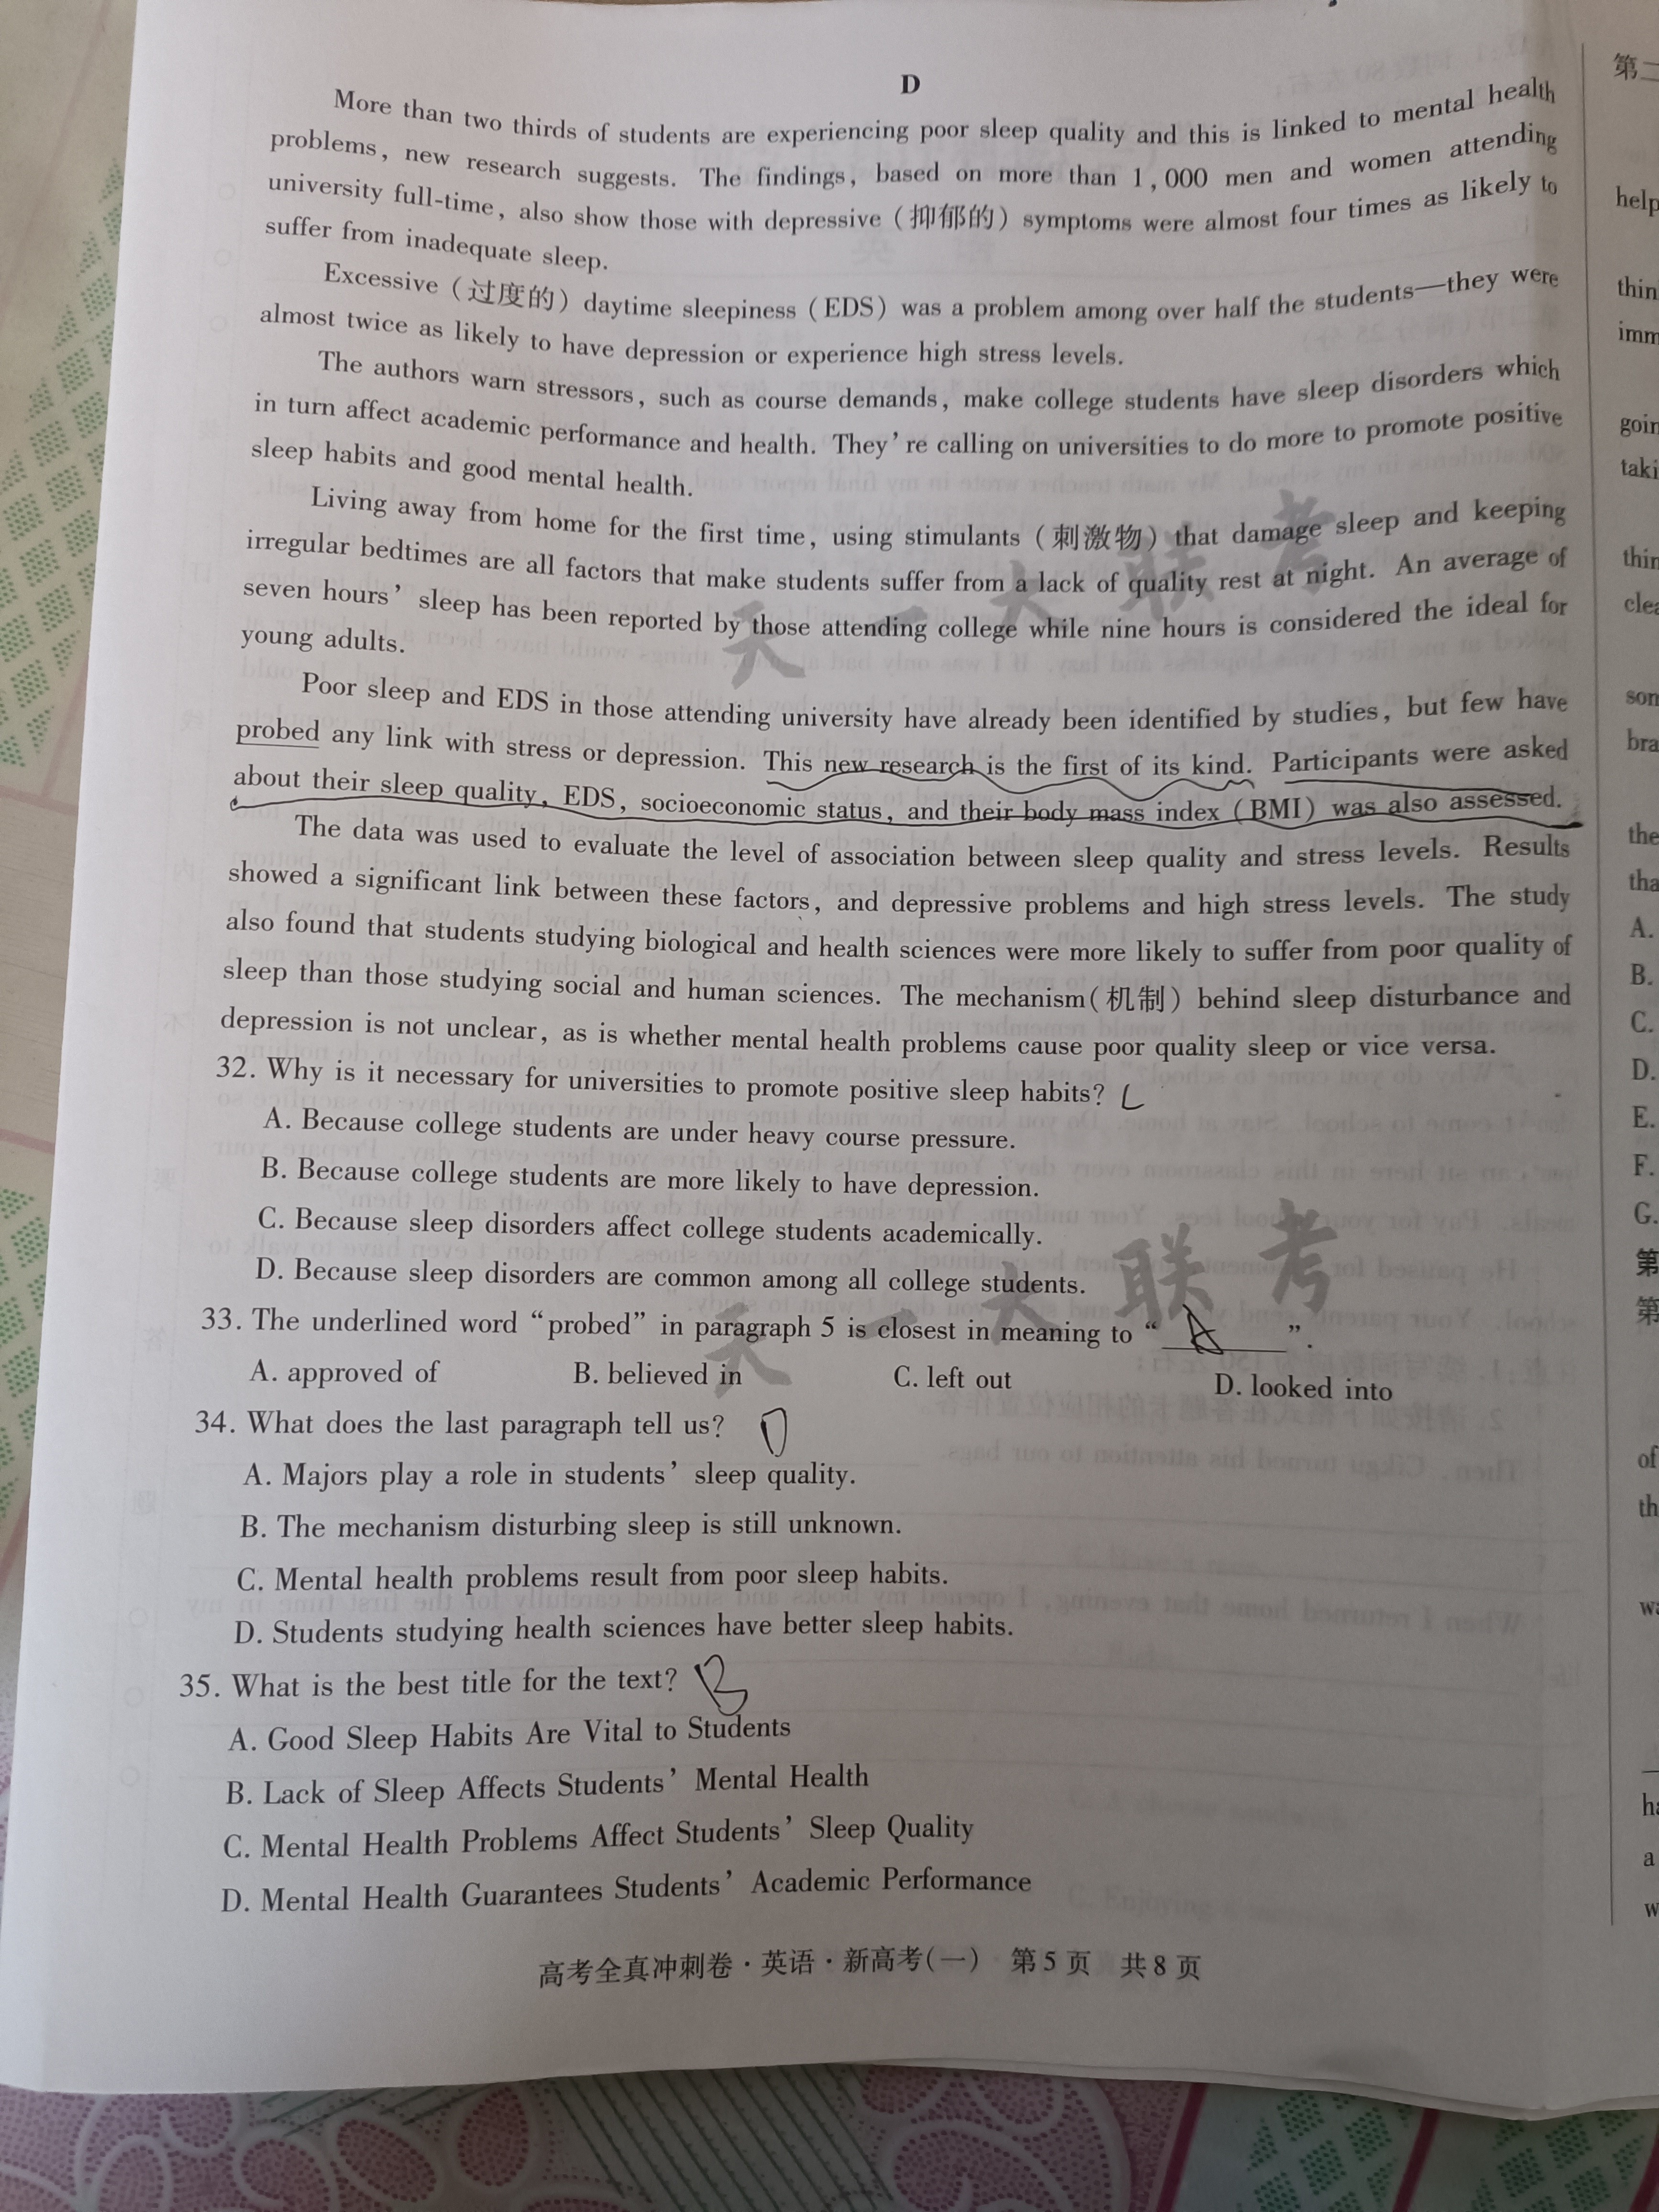 D
More than two thirds of students are experiencing poor sleep quality and this is linked to mental health
problems, new research suggests. The findings, based on more than 1,000 men and women attending
university full-time, also show those with depressive (抑郁的) symptoms were almost four times as likely to
suffer from inadequate sleep.
Excessive (过度的) daytime sleepiness (EDS) was a problem among over half the students—they were
almost twice as likely to have depression or experience high stress levels.
The authors warn stressors, such as course demands, make college students have sleep disorders which
in turn affect academic performance and health. They're calling on universities to do more to promote positive
sleep habits and good mental health.
Living away from home for the first time, using stimulants (刺激物) that damage sleep and keeping
irregular bedtimes are all factors that make students suffer from a lack of quality rest at night. An average of
seven hours' sleep has been reported by those attending college while nine hours is considered the ideal for
young adults.
Poor sleep and EDS in those attending university have already been identified by studies, but few have
probed any link with stress or depression. This new research is the first of its kind. Participants were asked
about their sleep quality, EDS, socioeconomic status, and their body mass index (BMI) was also assessed.
The data was used to evaluate the level of association between sleep quality and stress levels. Results
showed a significant link between these factors, and depressive problems and high stress levels. The study
also found that students studying biological and health sciences were more likely to suffer from poor quality of
sleep than those studying social and human sciences. The mechanism(机制) behind sleep disturbance and
depression is not unclear, as is whether mental health problems cause poor quality sleep or vice versa.
32. Why is it necessary for universities to promote positive sleep habits? C
A. Because college students are under heavy course pressure.
B. Because college students are more likely to have depression.
C. Because sleep disorders affect college students academically.
D. Because sleep disorders are common among all college students.
33. The underlined word "probed" in paragraph 5 is closest in meaning to "A".
A. approved of B. believed in C. left out D. looked into
34. What does the last paragraph tell us? D
A. Majors play a role in students' sleep quality.
B. The mechanism disturbing sleep is still unknown.
C. Mental health problems result from poor sleep habits.
D. Students studying health sciences have better sleep habits.
35. What is the best title for the text? B
A. Good Sleep Habits Are Vital to Students
B. Lack of Sleep Affects Students' Mental Health
C. Mental Health Problems Affect Students' Sleep Quality
D. Mental Health Guarantees Students' Academic Performance
高考全真冲刺卷·英语·新高考(一) 第5页 共8页
天一大联考
天一大联考
第二
help
thin
imm
goin
taki
thin
clea
son
bra
the
tha
A.
B.
C.
D.
E.
F.
G.
第
第
of
th
wa
ha
a
w